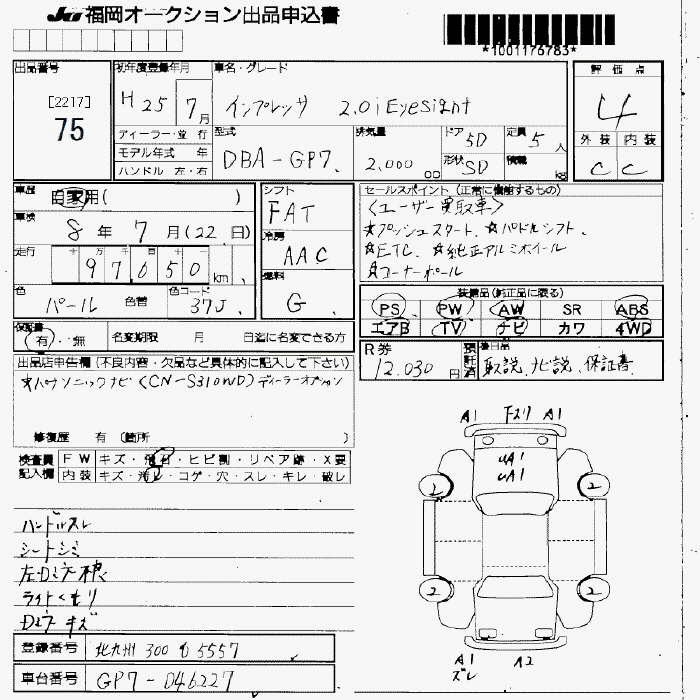 JU 福岡オークション出品申込書
*1001176783*
出品番号 初年度登録年月 車名・グレード 評価点
[2217] H 25 7月 インプレッサ 2.0i EyeSight 4
75 ディーラー・並行 型式 排気量 ドア 5D 定員 5人 外装 内装
モデル年式 年 DBA-GP7. 2,000 cc 形状 SD 積載 kg C C
ハンドル 左・右
車歴 自家用( ) シフト セールスポイント (正常に機能するもの)
FAT <ユーザー買取車>
車検 8年 7月(22日) 冷房 ☆プッシュスタート、☆パドルシフト、
走行 十万千百十 AAC ☆ETC、☆純正アルミホイール
97650km 燃料 ☆コーナーポール
色 色替 色コード G 装備品(純正品に限る)
パール 37J PS PW AW SR ABS
エアB TV ナビ カワ 4WD
保証書 有・無 名変期限 月 日迄に名変できる方 R券 預託済 後日品
12,030円 取説、ナビ説、保証書
出品店申告欄(不良内容・欠品など具体的に記入して下さい)
☆パナソニックナビ(CN-S310WD)ディーラーオプション
修復歴 有 (箇所 )
A1 下スリ A1
検査員 FW キズ・ ・ヒビ割・リペア跡・X要 UA1
記入欄 内装 キズ・ ・コゲ・穴・スレ・キレ・破レ UA1
2 2
ハンドルスレ
シートシミ
左Dミラー
ライトくもり 2 2
Dミラーキズ
登録番号 北九州 300 5557
A1 A2
車台番号 GP7-046227 ズレ